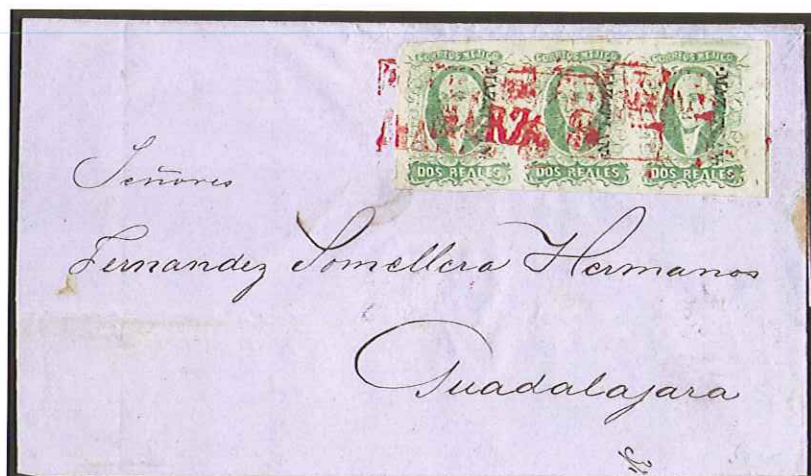 CORREOS MEJICO CORREOS MEJICO CORREOS MEJICO
DOS REALES DOS REALES DOS REALES
Señores
Fernandez Somellera Hermanos
Guadalajara